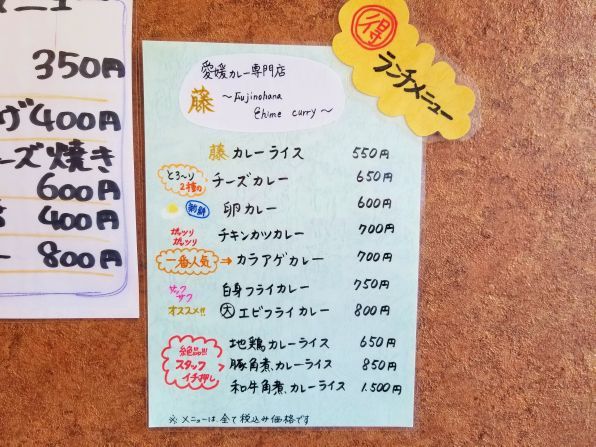 ニュー
350円
400円
ーズ焼き
600円
400円
800円
得
ランチメニュー
愛媛カレー専門店
藤
〜Fujinohana
Ehime curry〜
藤カレーライス 550円
とろ〜り
2種の
チーズカレー 650円
新鮮 卵カレー 600円
ガッツリ
ガッツリ
チキンカツカレー 700円
一番人気 → カラアゲカレー 700円
サック
サク
白身フライカレー 750円
オススメ!! 大エビフライカレー 800円
絶品!!!
スタッフ
イチ押し
地鶏カレーライス 650円
豚角煮カレーライス 850円
和牛角煮カレーライス 1,500円
※メニューは全て税込み価格です